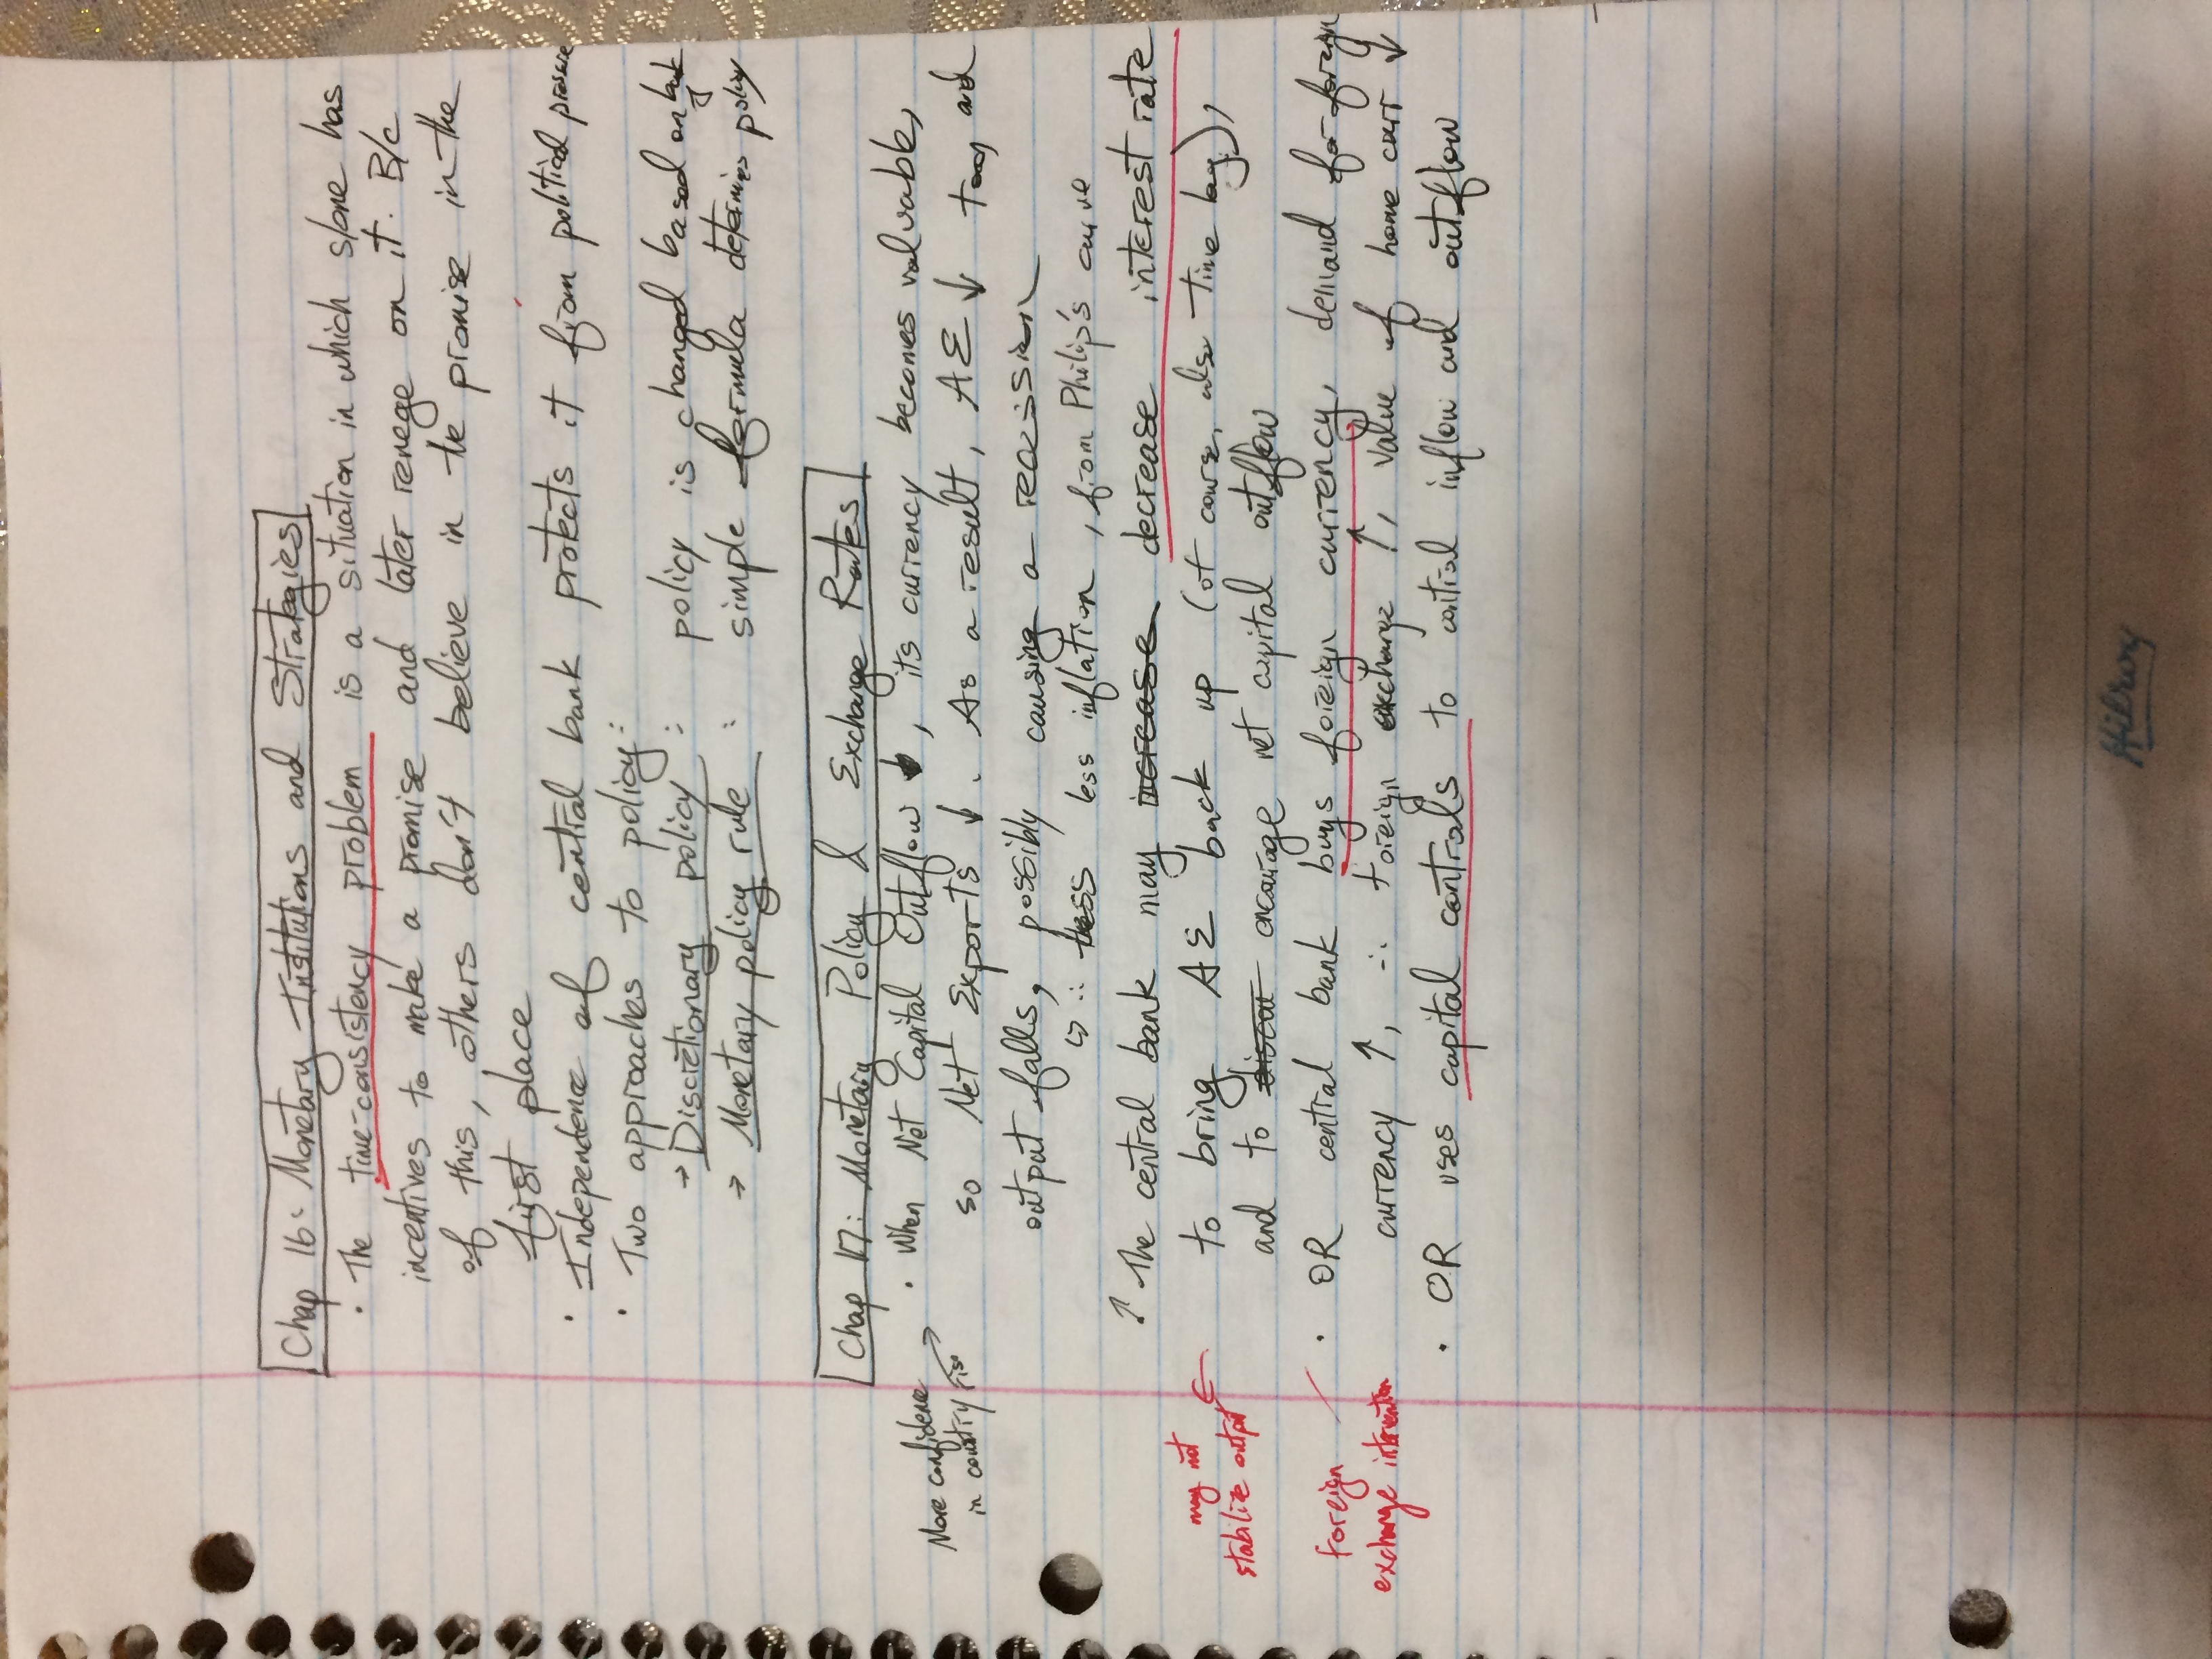 Chap 16: Monetary Institutions and Strategies
· The time-consistency problem is a situation in which s/one has
incentives to make a promise and later renege on it. B/c
of this, others don't believe in the promise in the
first place
· Independence of central bank protects it from political pressure
· Two approaches to policy:
→ Discretionary policy : policy is changed based on
→ Monetary policy rule : simple formula determines policy
Chap 17: Monetary Policy & Exchange Rates
More confidence
in country rise
· When Net Capital Outflow ↓, its currency becomes valuable,
so Net Exports ↓. As a result, AE ↓ too, and
output falls, possibly causing a recession
↳ ∴ less less inflation, from Philip's curve
↑ The central bank may increase decrease interest rate
may not
stabilize output
to bring AE back up (of course, also time lag),
and to discou encourage net capital outflow
Foreign
exchange intervention
· OR central bank buys foreign currency, demand for foreign
currency ↑, ∴ foreign exchange ↑, value of home curr ↓
· OR uses capital controls to control inflow and outflow
Hilroy